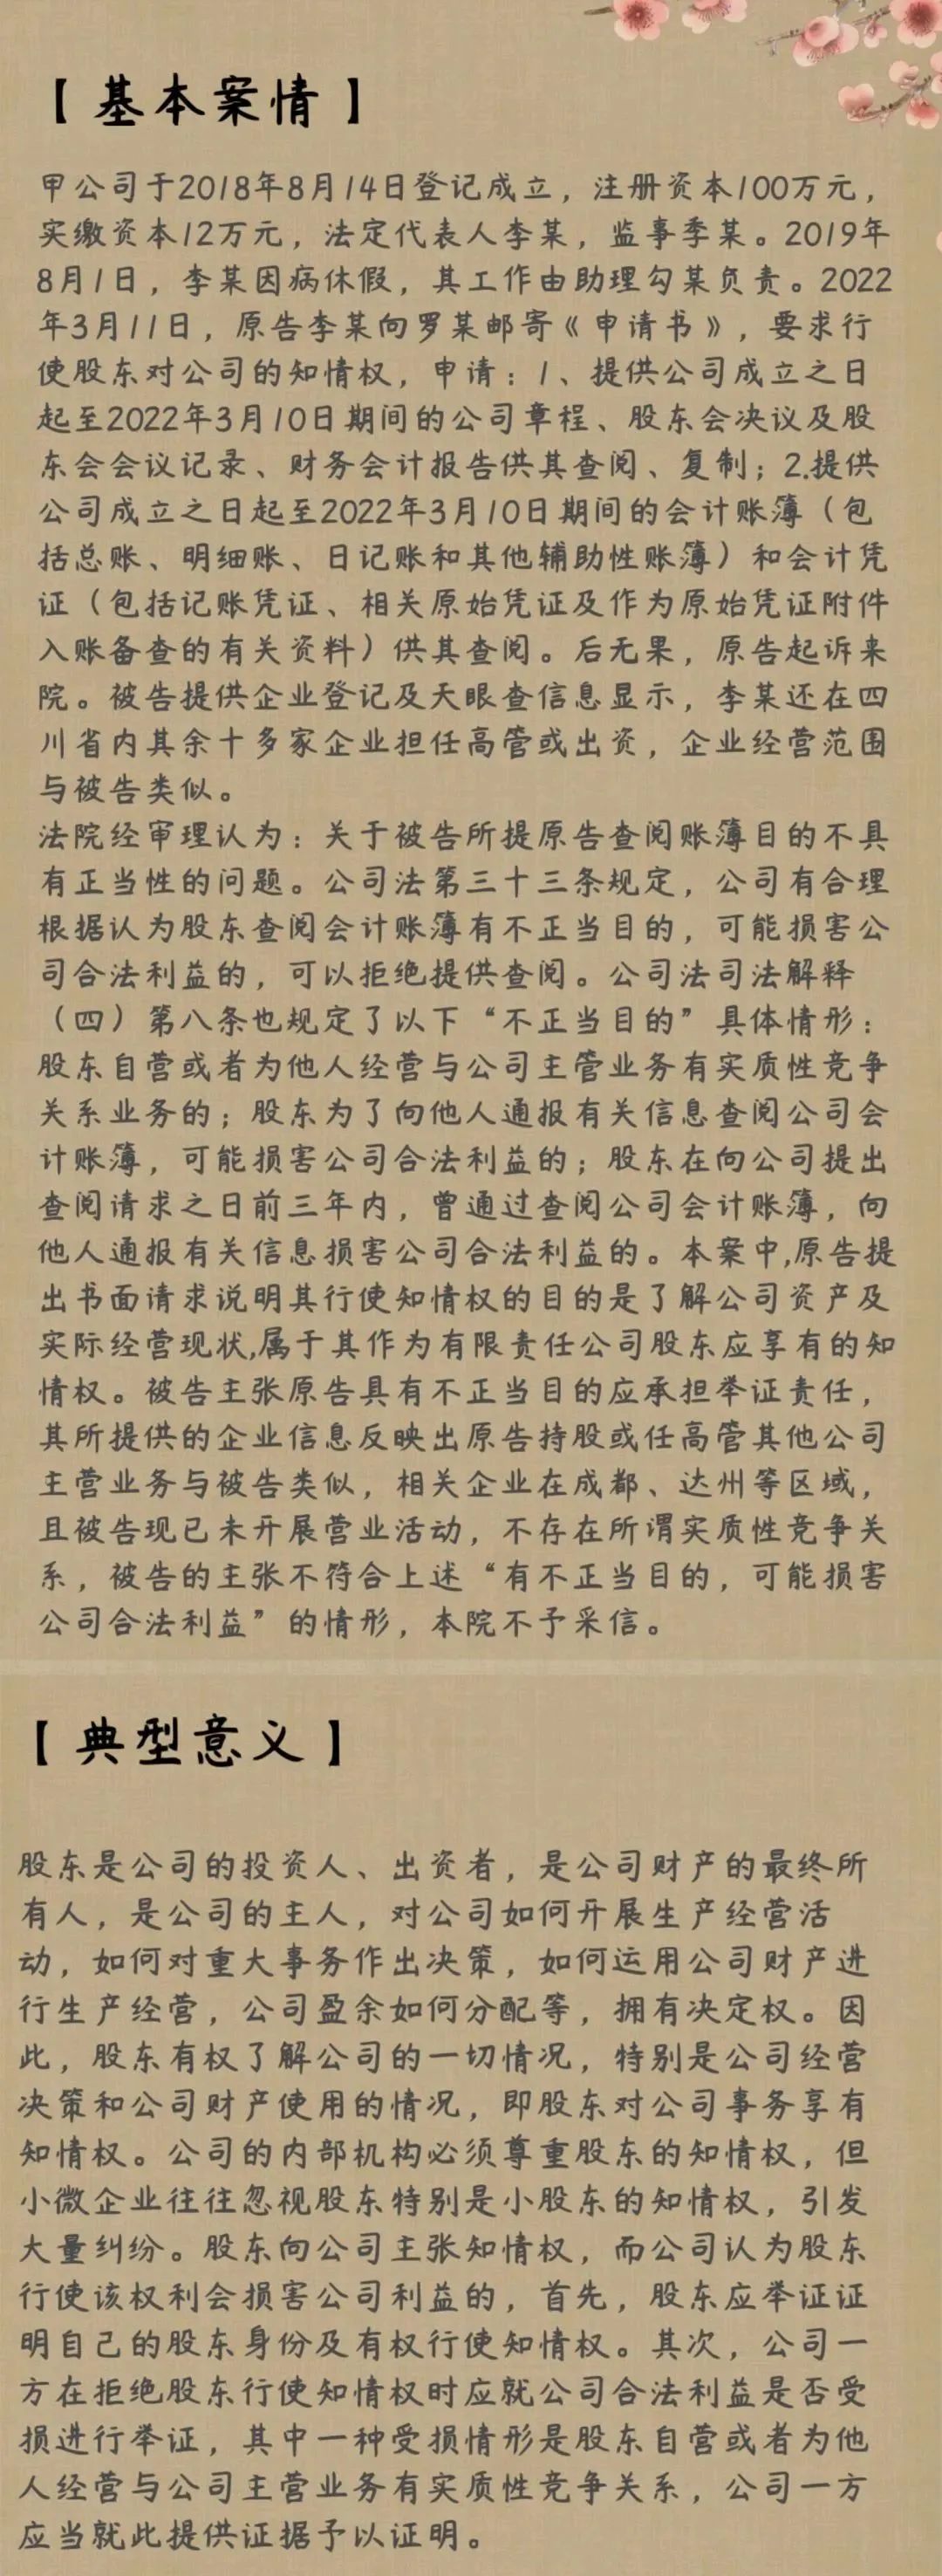 【基本案情】
甲公司于2018年8月14日登记成立，注册资本100万元，
实缴资本12万元，法定代表人李某，监事季某。2019年
8月1日，李某因病休假，其工作由助理勾某负责。2022
年3月11日，原告李某向罗某邮寄《申请书》，要求行
使股东对公司的知情权，申请：1、提供公司成立之日
起至2022年3月10日期间的公司章程、股东会决议及股
东会会议记录、财务会计报告供其查阅、复制；2.提供
公司成立之日起至2022年3月10日期间的会计账簿（包
括总账、明细账、日记账和其他辅助性账簿）和会计凭
证（包括记账凭证、相关原始凭证及作为原始凭证附件
入账备查的有关资料）供其查阅。后无果，原告起诉来
院。被告提供企业登记及天眼查信息显示，李某还在四
川省内其余十多家企业担任高管或出资，企业经营范围
与被告类似。
法院经审理认为：关于被告所提原告查阅账簿目的不具
有正当性的问题。公司法第三十三条规定，公司有合理
根据认为股东查阅会计账簿有不正当目的，可能损害公
司合法利益的，可以拒绝提供查阅。公司法司法解释
（四）第八条也规定了以下“不正当目的”具体情形：
股东自营或者为他人经营与公司主管业务有实质性竞争
关系业务的；股东为了向他人通报有关信息查阅公司会
计账簿，可能损害公司合法利益的；股东在向公司提出
查阅请求之日前三年内，曾通过查阅公司会计账簿，向
他人通报有关信息损害公司合法利益的。本案中,原告提
出书面请求说明其行使知情权的目的是了解公司资产及
实际经营现状,属于其作为有限责任公司股东应享有的知
情权。被告主张原告具有不正当目的应承担举证责任，
其所提供的企业信息反映出原告持股或任高管其他公司
主营业务与被告类似，相关企业在成都、达州等区域，
且被告现已未开展营业活动，不存在所谓实质性竞争关
系，被告的主张不符合上述“有不正当目的，可能损害
公司合法利益”的情形，本院不予采信。
【典型意义】
股东是公司的投资人、出资者，是公司财产的最终所
有人，是公司的主人，对公司如何开展生产经营活
动，如何对重大事务作出决策，如何运用公司财产进
行生产经营，公司盈余如何分配等，拥有决定权。因
此，股东有权了解公司的一切情况，特别是公司经营
决策和公司财产使用的情况，即股东对公司事务享有
知情权。公司的内部机构必须尊重股东的知情权，但
小微企业往往忽视股东特别是小股东的知情权，引发
大量纠纷。股东向公司主张知情权，而公司认为股东
行使该权利会损害公司利益的，首先，股东应举证证
明自己的股东身份及有权行使知情权。其次，公司一
方在拒绝股东行使知情权时应就公司合法利益是否受
损进行举证，其中一种受损情形是股东自营或者为他
人经营与公司主营业务有实质性竞争关系，公司一方
应当就此提供证据予以证明。